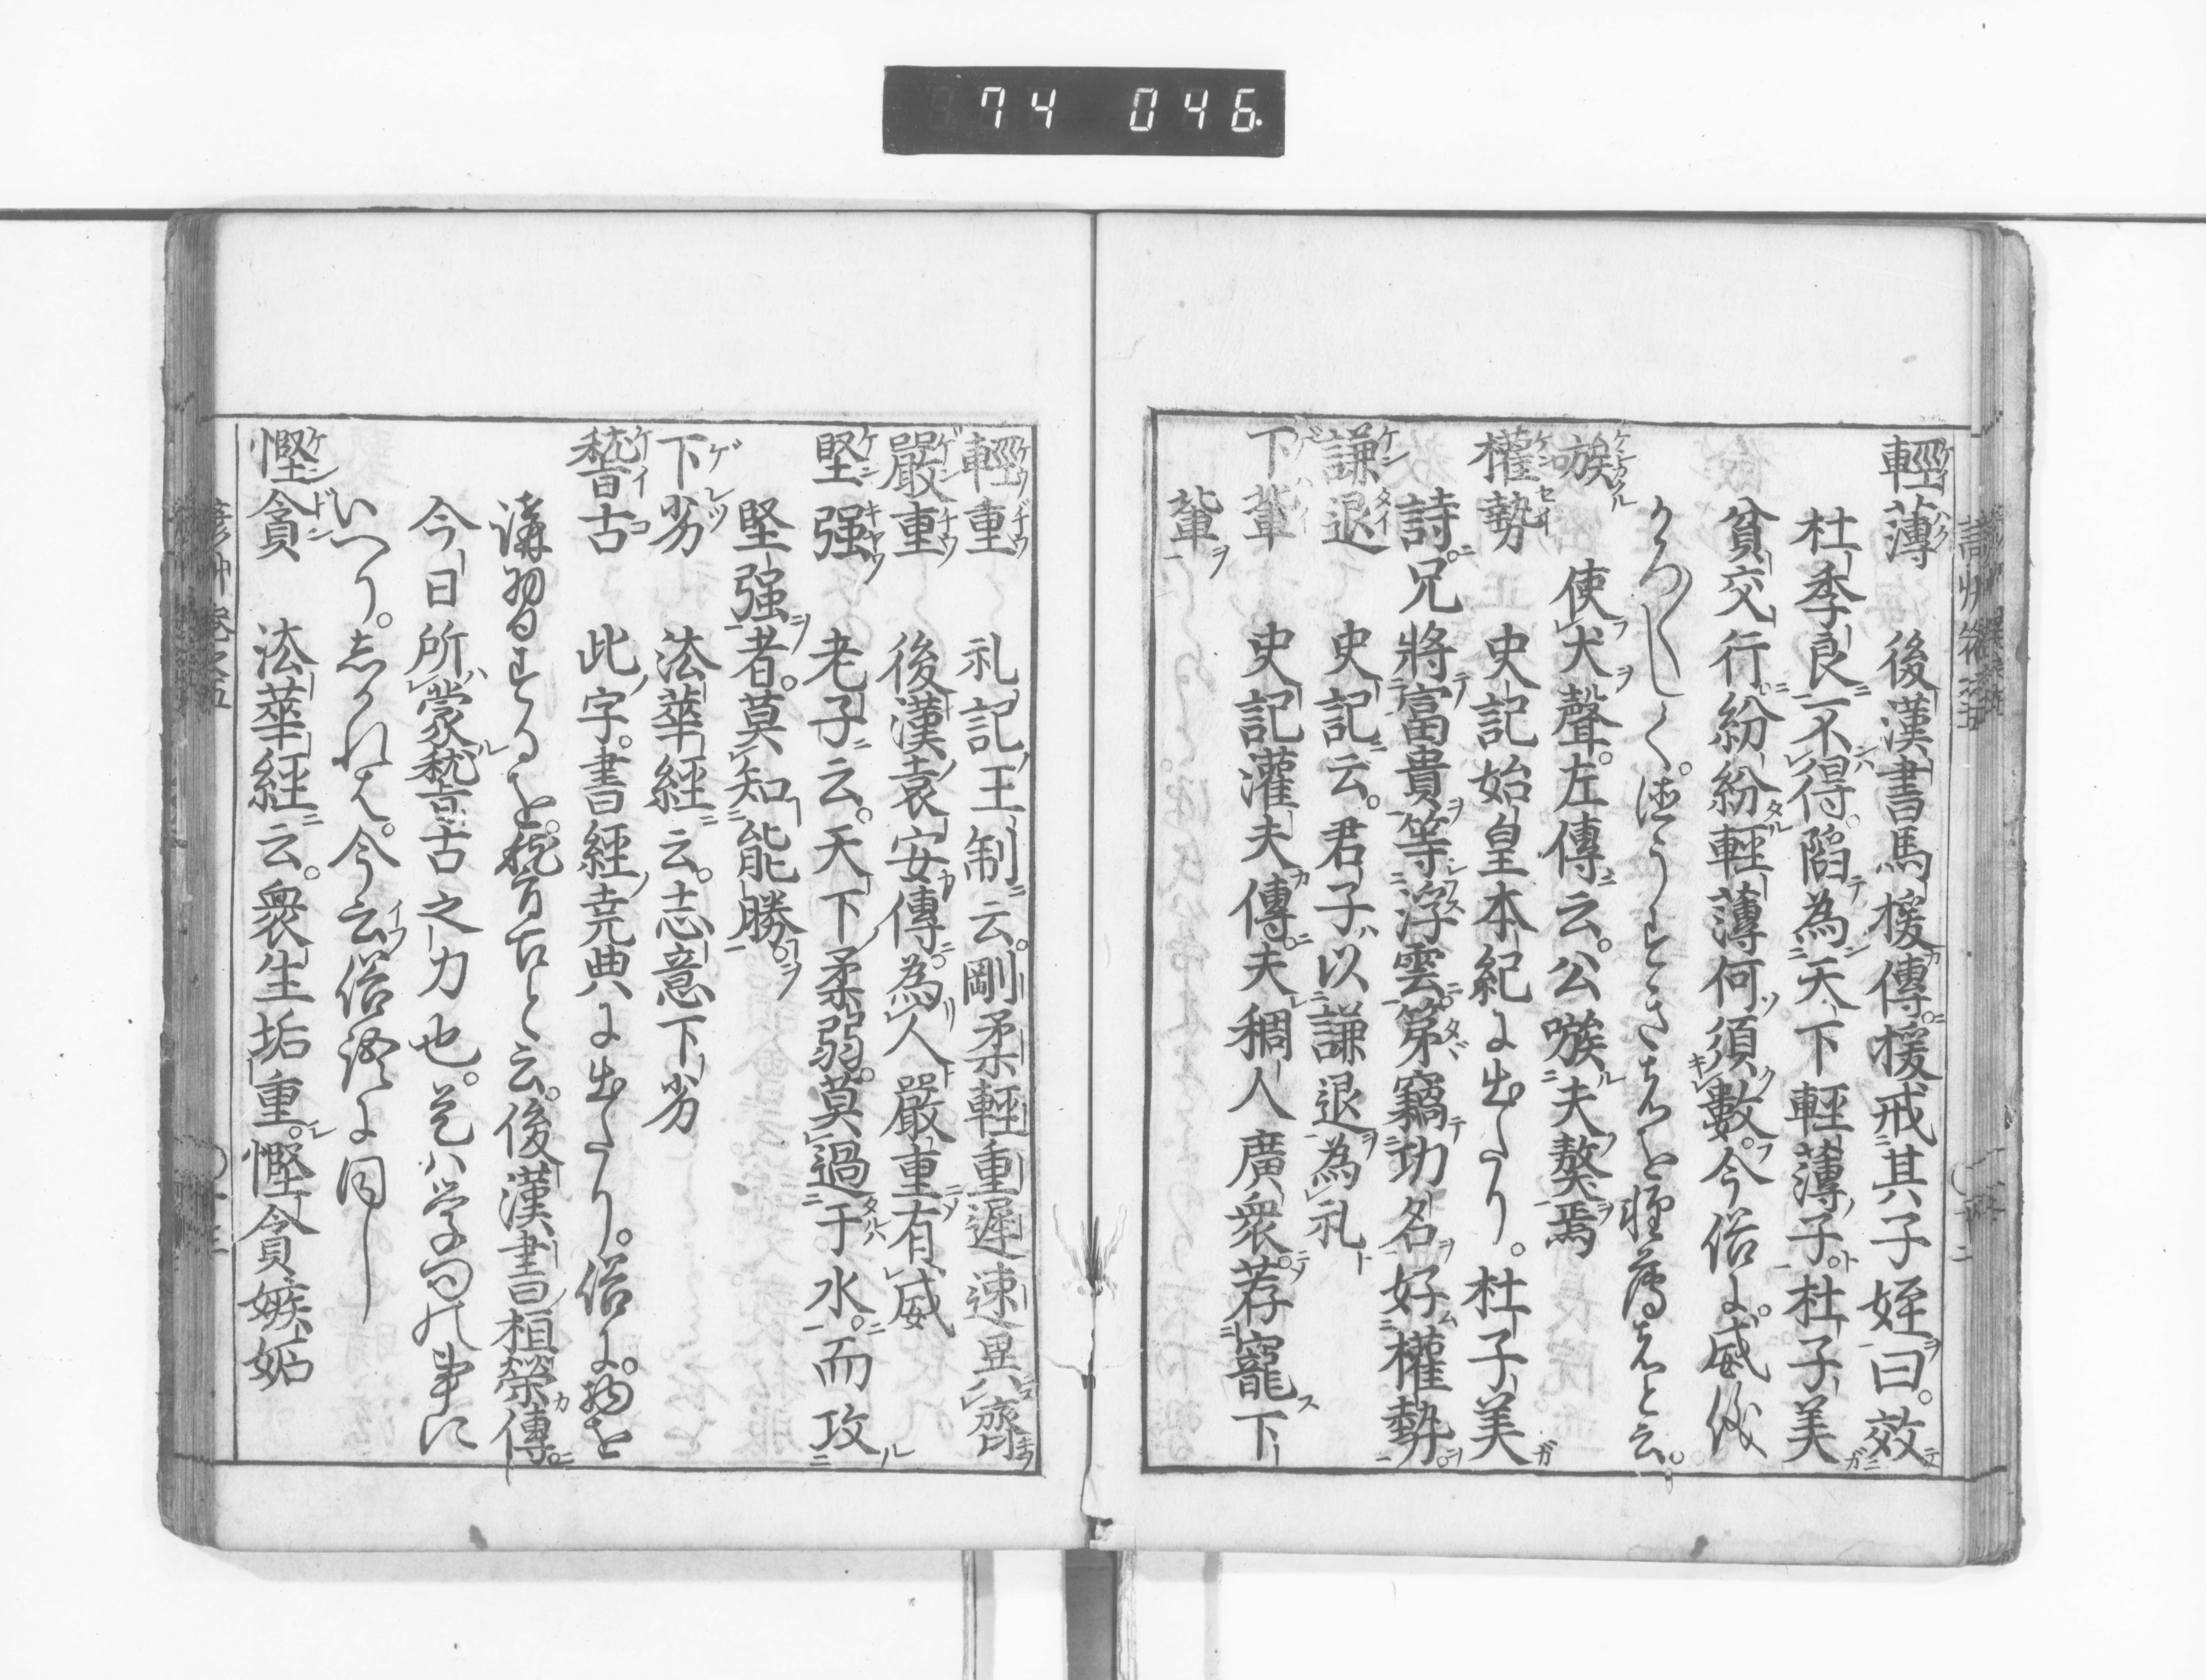 74 046
輕薄 後漢書馬援傳援戒其子姪曰。效
杜季良不得。陷為天下輕薄子。杜子美
貧交行紛紛輕薄何須數。今俗に。威儀
かろ〳〵しく。徳うすきものを軽薄者と云。
嗾 使犬聲。左傳云。公嗾夫獒焉
權勢 史記始皇本紀に出たり。杜子美
詩。兄將富貴等浮雲。第竊功名好權勢。
謙退 史記云。君子以謙退為礼
下輩 史記灌夫傳。夫稠人廣衆荐寵下
輩
輕重 礼記王制云。剛柔輕重遲速異齊
嚴重 後漢袁安傳。為人嚴重有威
堅强 老子云。天下柔弱。莫過于水。而攻
堅强者。莫知能勝。
下劣 法華經云。志意下劣
稽古 此字。書經堯典に出たり。俗に。物を
講習するを。稽古と云。後漢書桓榮傳。
今日所蒙稽古之力也。是ハ学問の事に
いへり。しかれば。今云俗語に同し
慳貪 法華經云。衆生垢重。慳貪嫉妬